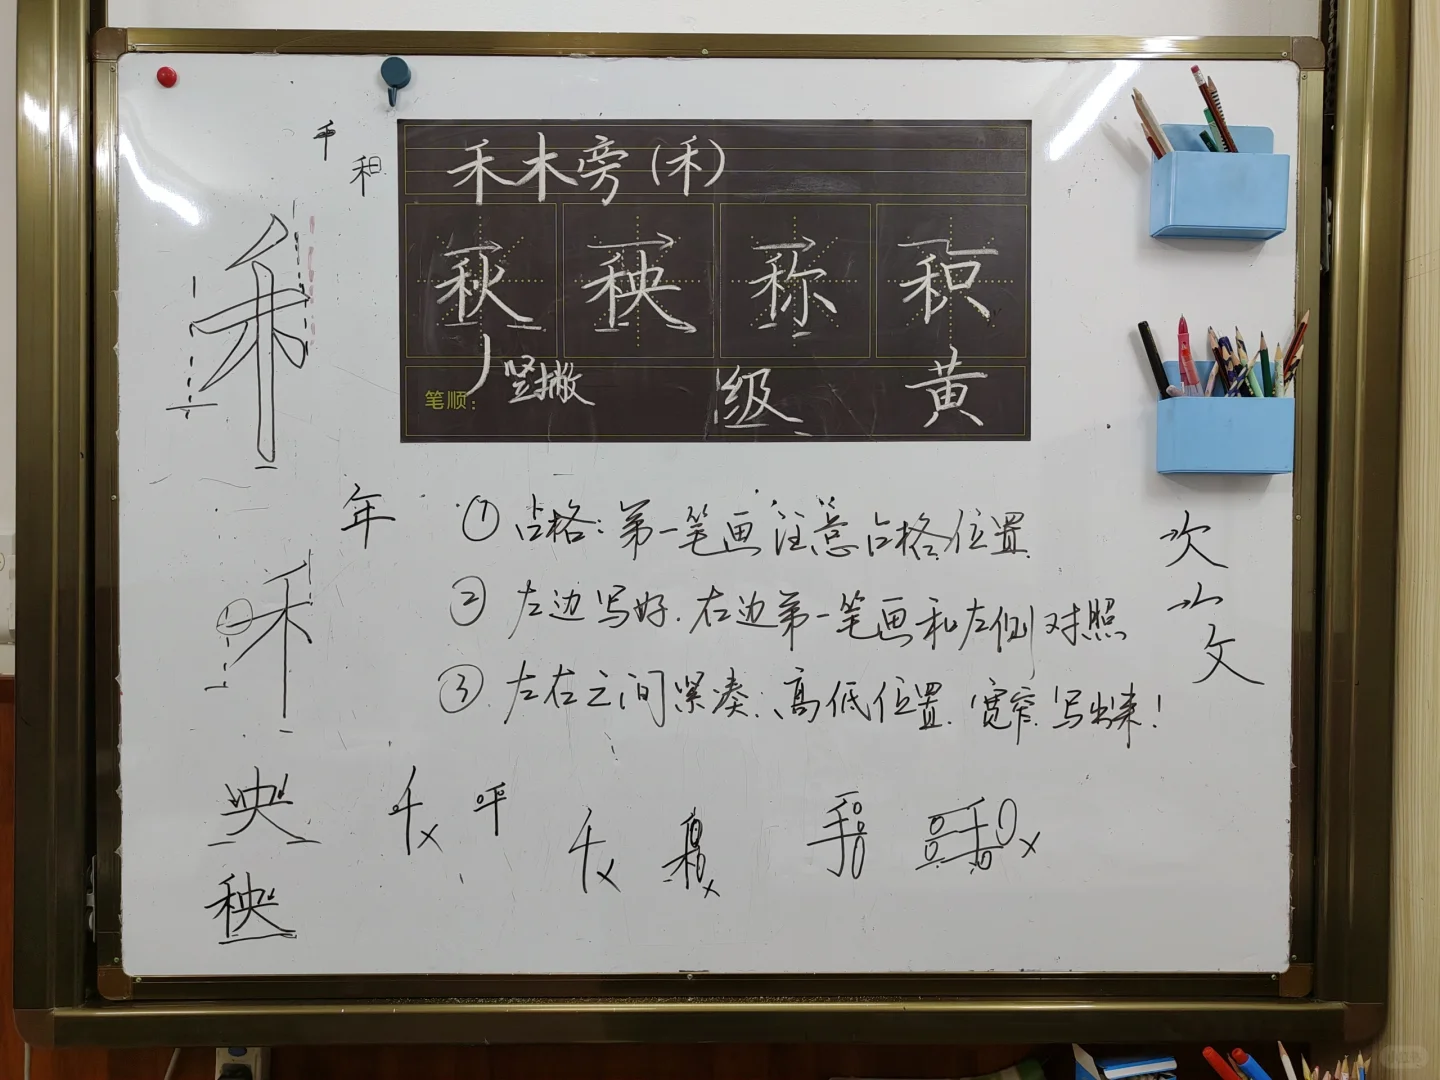 千
积
禾木旁(禾)
秋 秧 称 积
丿竖撇 级 黄
笔顺:
禾
年
①占格:第一笔画注意占格位置
②左边写好.右边第一笔画和左侧对照
③左右之间紧凑;高低位置.宽窄.写出来!
禾
次
文
央
秧